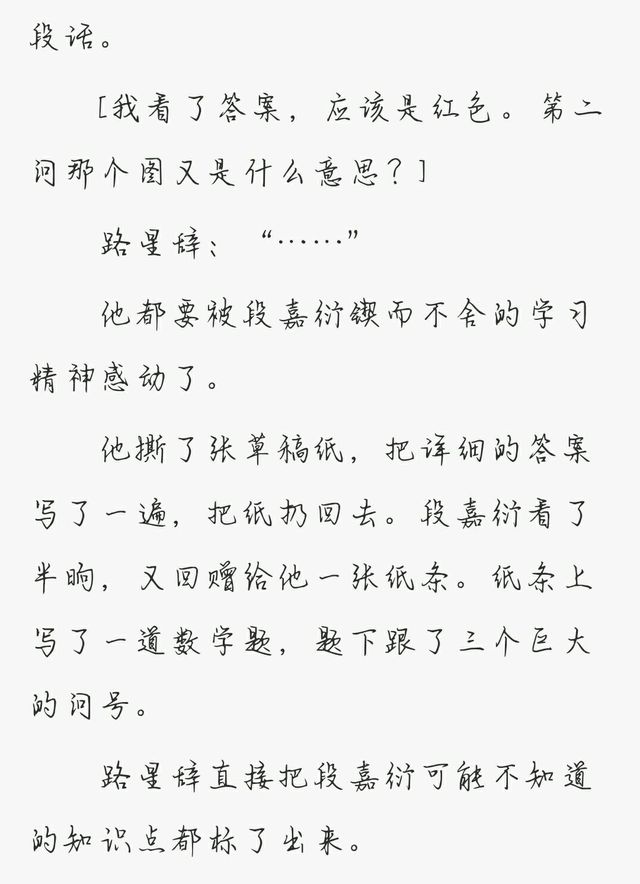 段话。
[我看了答案，应该是红色。第二
问那个图又是什么意思？]
路星辞：“……”
他都要被段嘉衍锲而不舍的学习
精神感动了。
他撕了张草稿纸，把详细的答案
写了一遍，把纸扔回去。段嘉衍看了
半晌，又回赠给他一张纸条。纸条上
写了一道数学题，题下跟了三个巨大
的问号。
路星辞直接把段嘉衍可能不知道
的知识点都标了出来。